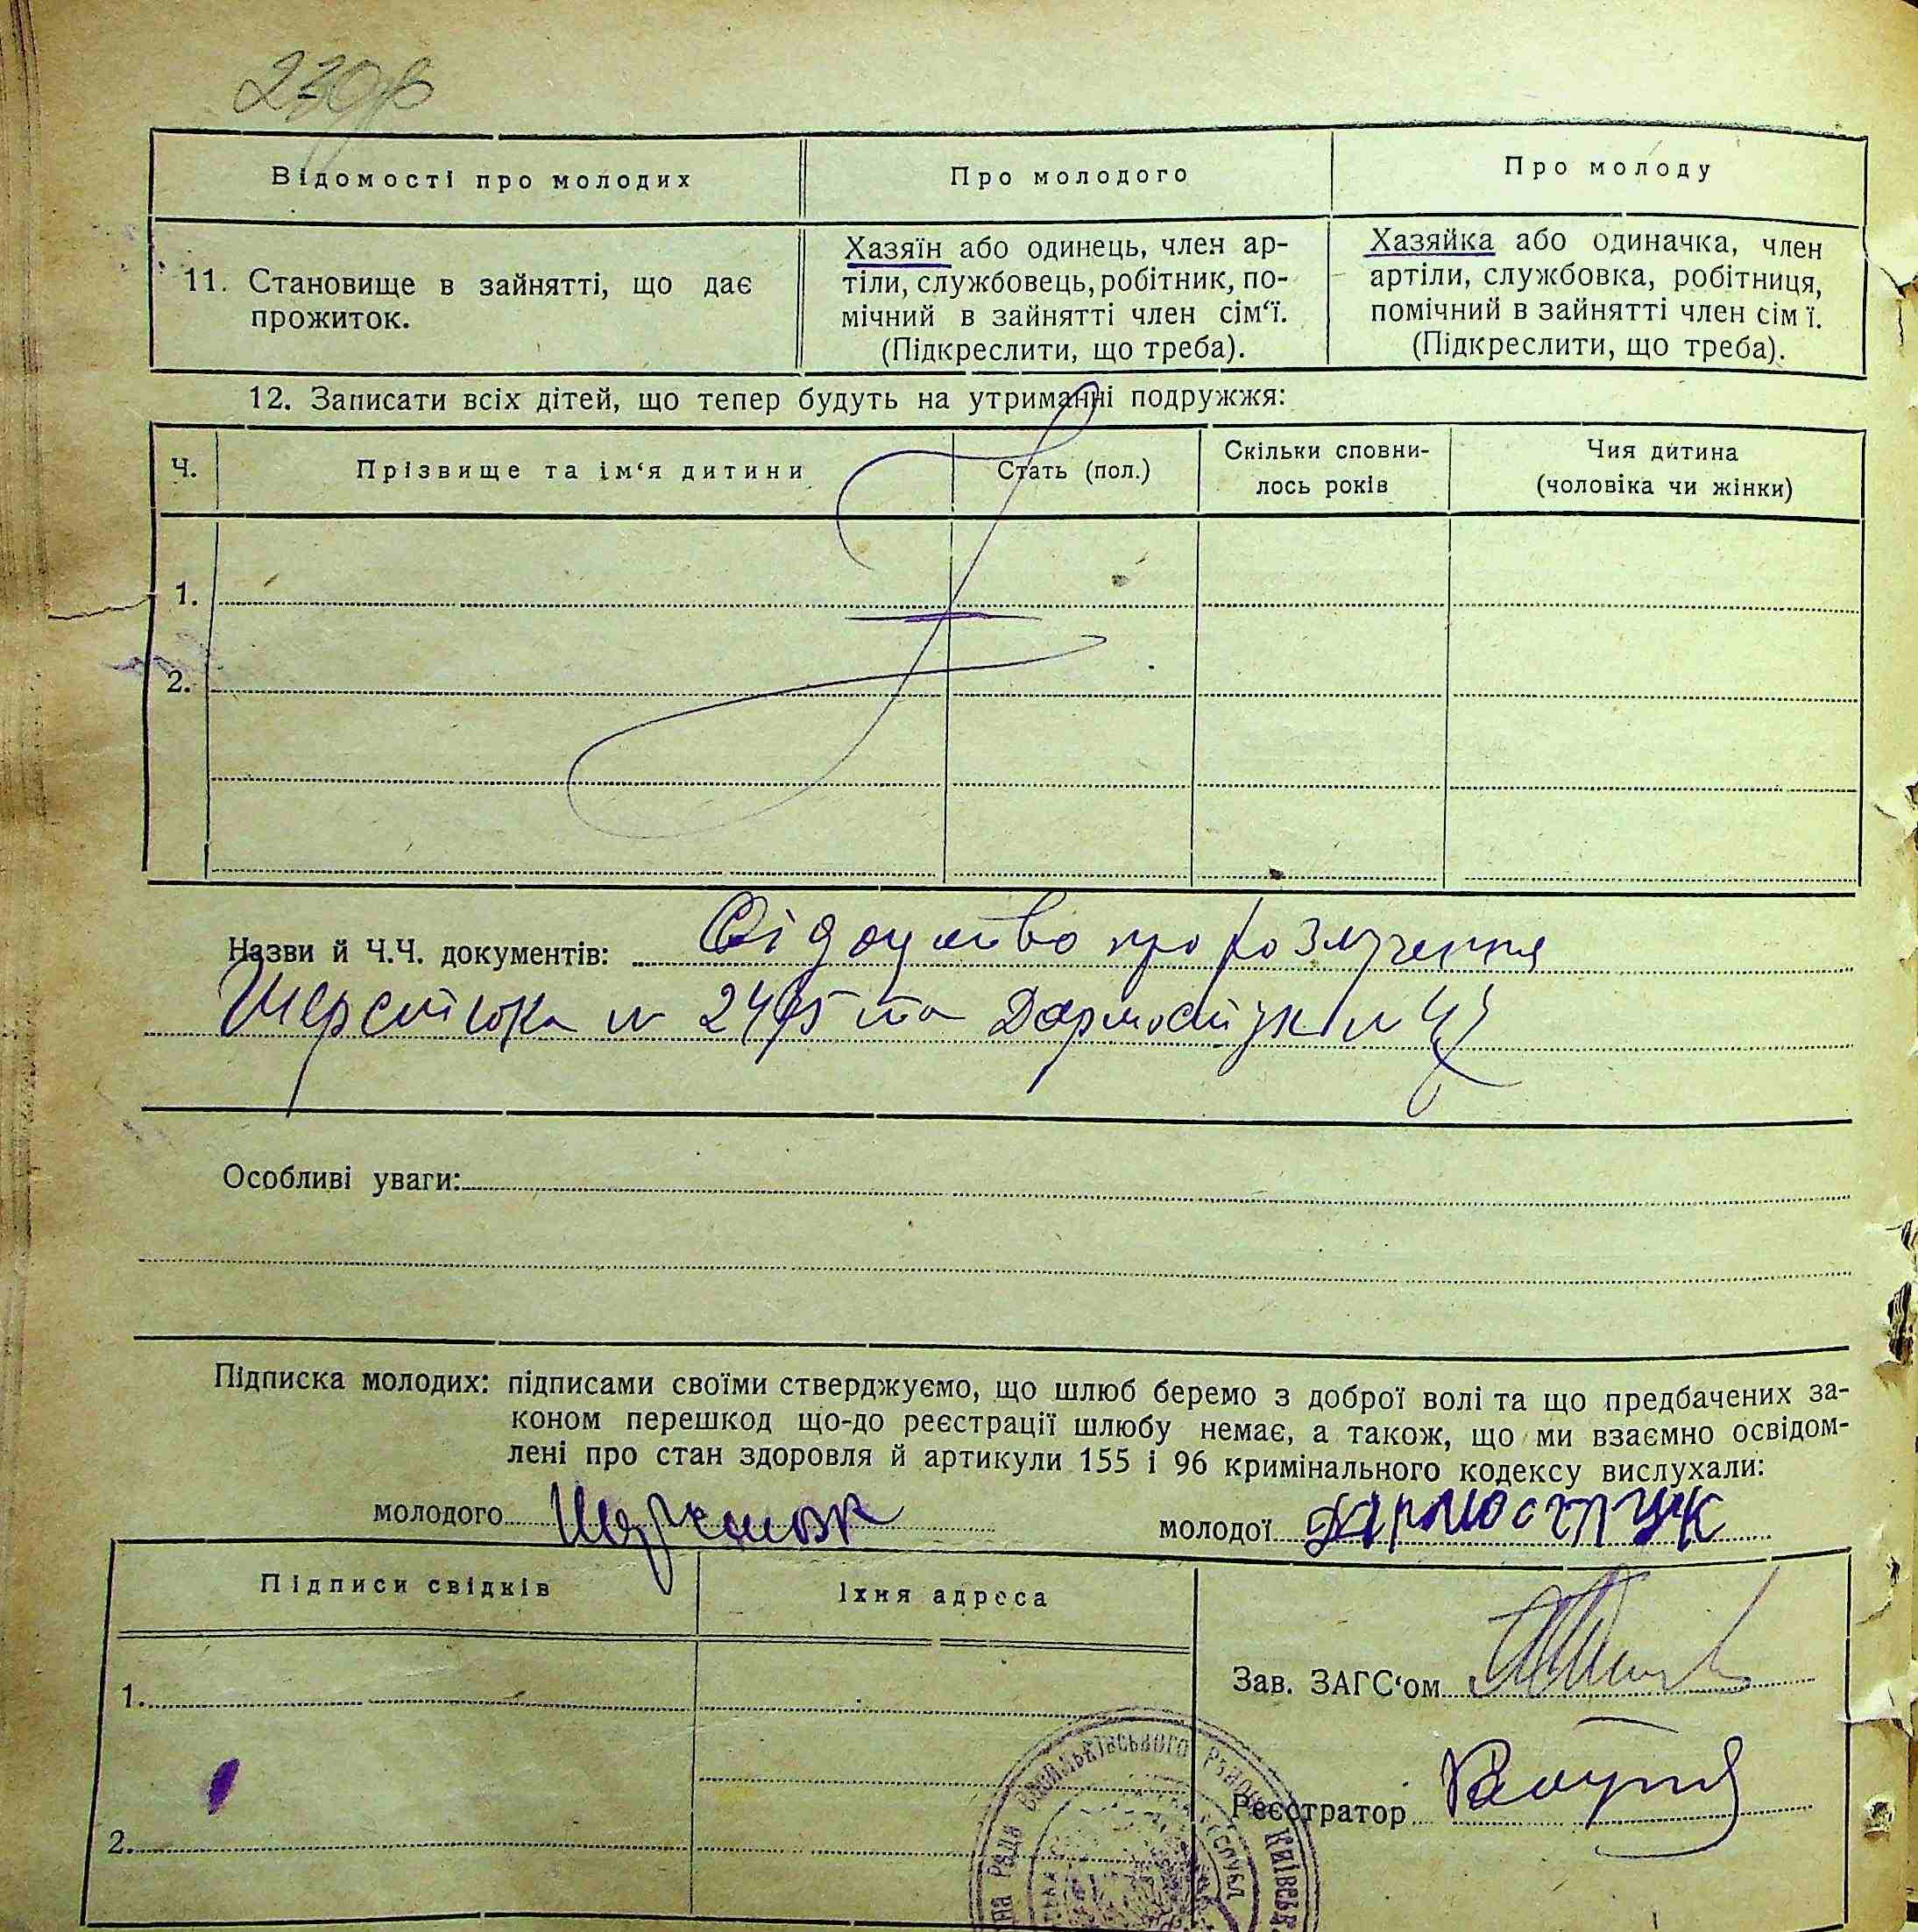 Відомості про молодих
Про молодого
Про молоду
11. Становище в зайнятті, що дає
прожиток.
Хазяїн або одинець, член ар-
тіли, службовець, робітник, по-
мічний в зайнятті член сім‘ї.
(Підкреслити, що треба).
Хазяйка або одиначка, член
артіли, службовка, робітниця,
помічний в зайнятті член сім ї.
(Підкреслити, що треба).
12. Записати всіх дітей, що тепер будуть на утриманні подружжя:
Ч.
Прізвище та ім‘я дитини
Стать (пол.)
Скільки сповни-
лось років
Чия дитина
(чоловіка чи жінки)
1.
2.
Назви й Ч.Ч. документів: про розлучення
та Дармостук
Особливі уваги:
Підписка молодих: підписами своїми стверджуємо, що шлюб беремо з доброї волі та що предбачених за-
коном перешкод що-до реєстрації шлюбу немає, а також, що ми взаємно освідом-
лені про стан здоровля й артикули 155 і 96 кримінального кодексу вислухали:
молодого
молодої Дармостук
Підписи свідків
Їхня адреса
1.
2.
Зав. ЗАГС‘ом
Реєстратор
Рада Васильківського Київськ